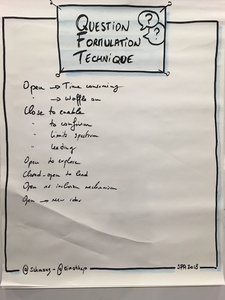 QUESTION
FORMULATION
TECHNIQUE
? ?
Open → Time consuming
" → Waffle on
Close to enable
" to confirm
" limits spectrum
" leading
Open to explore
Closed-open to lead
Open as inclusion mechanism
Open → new idea
SPA2018